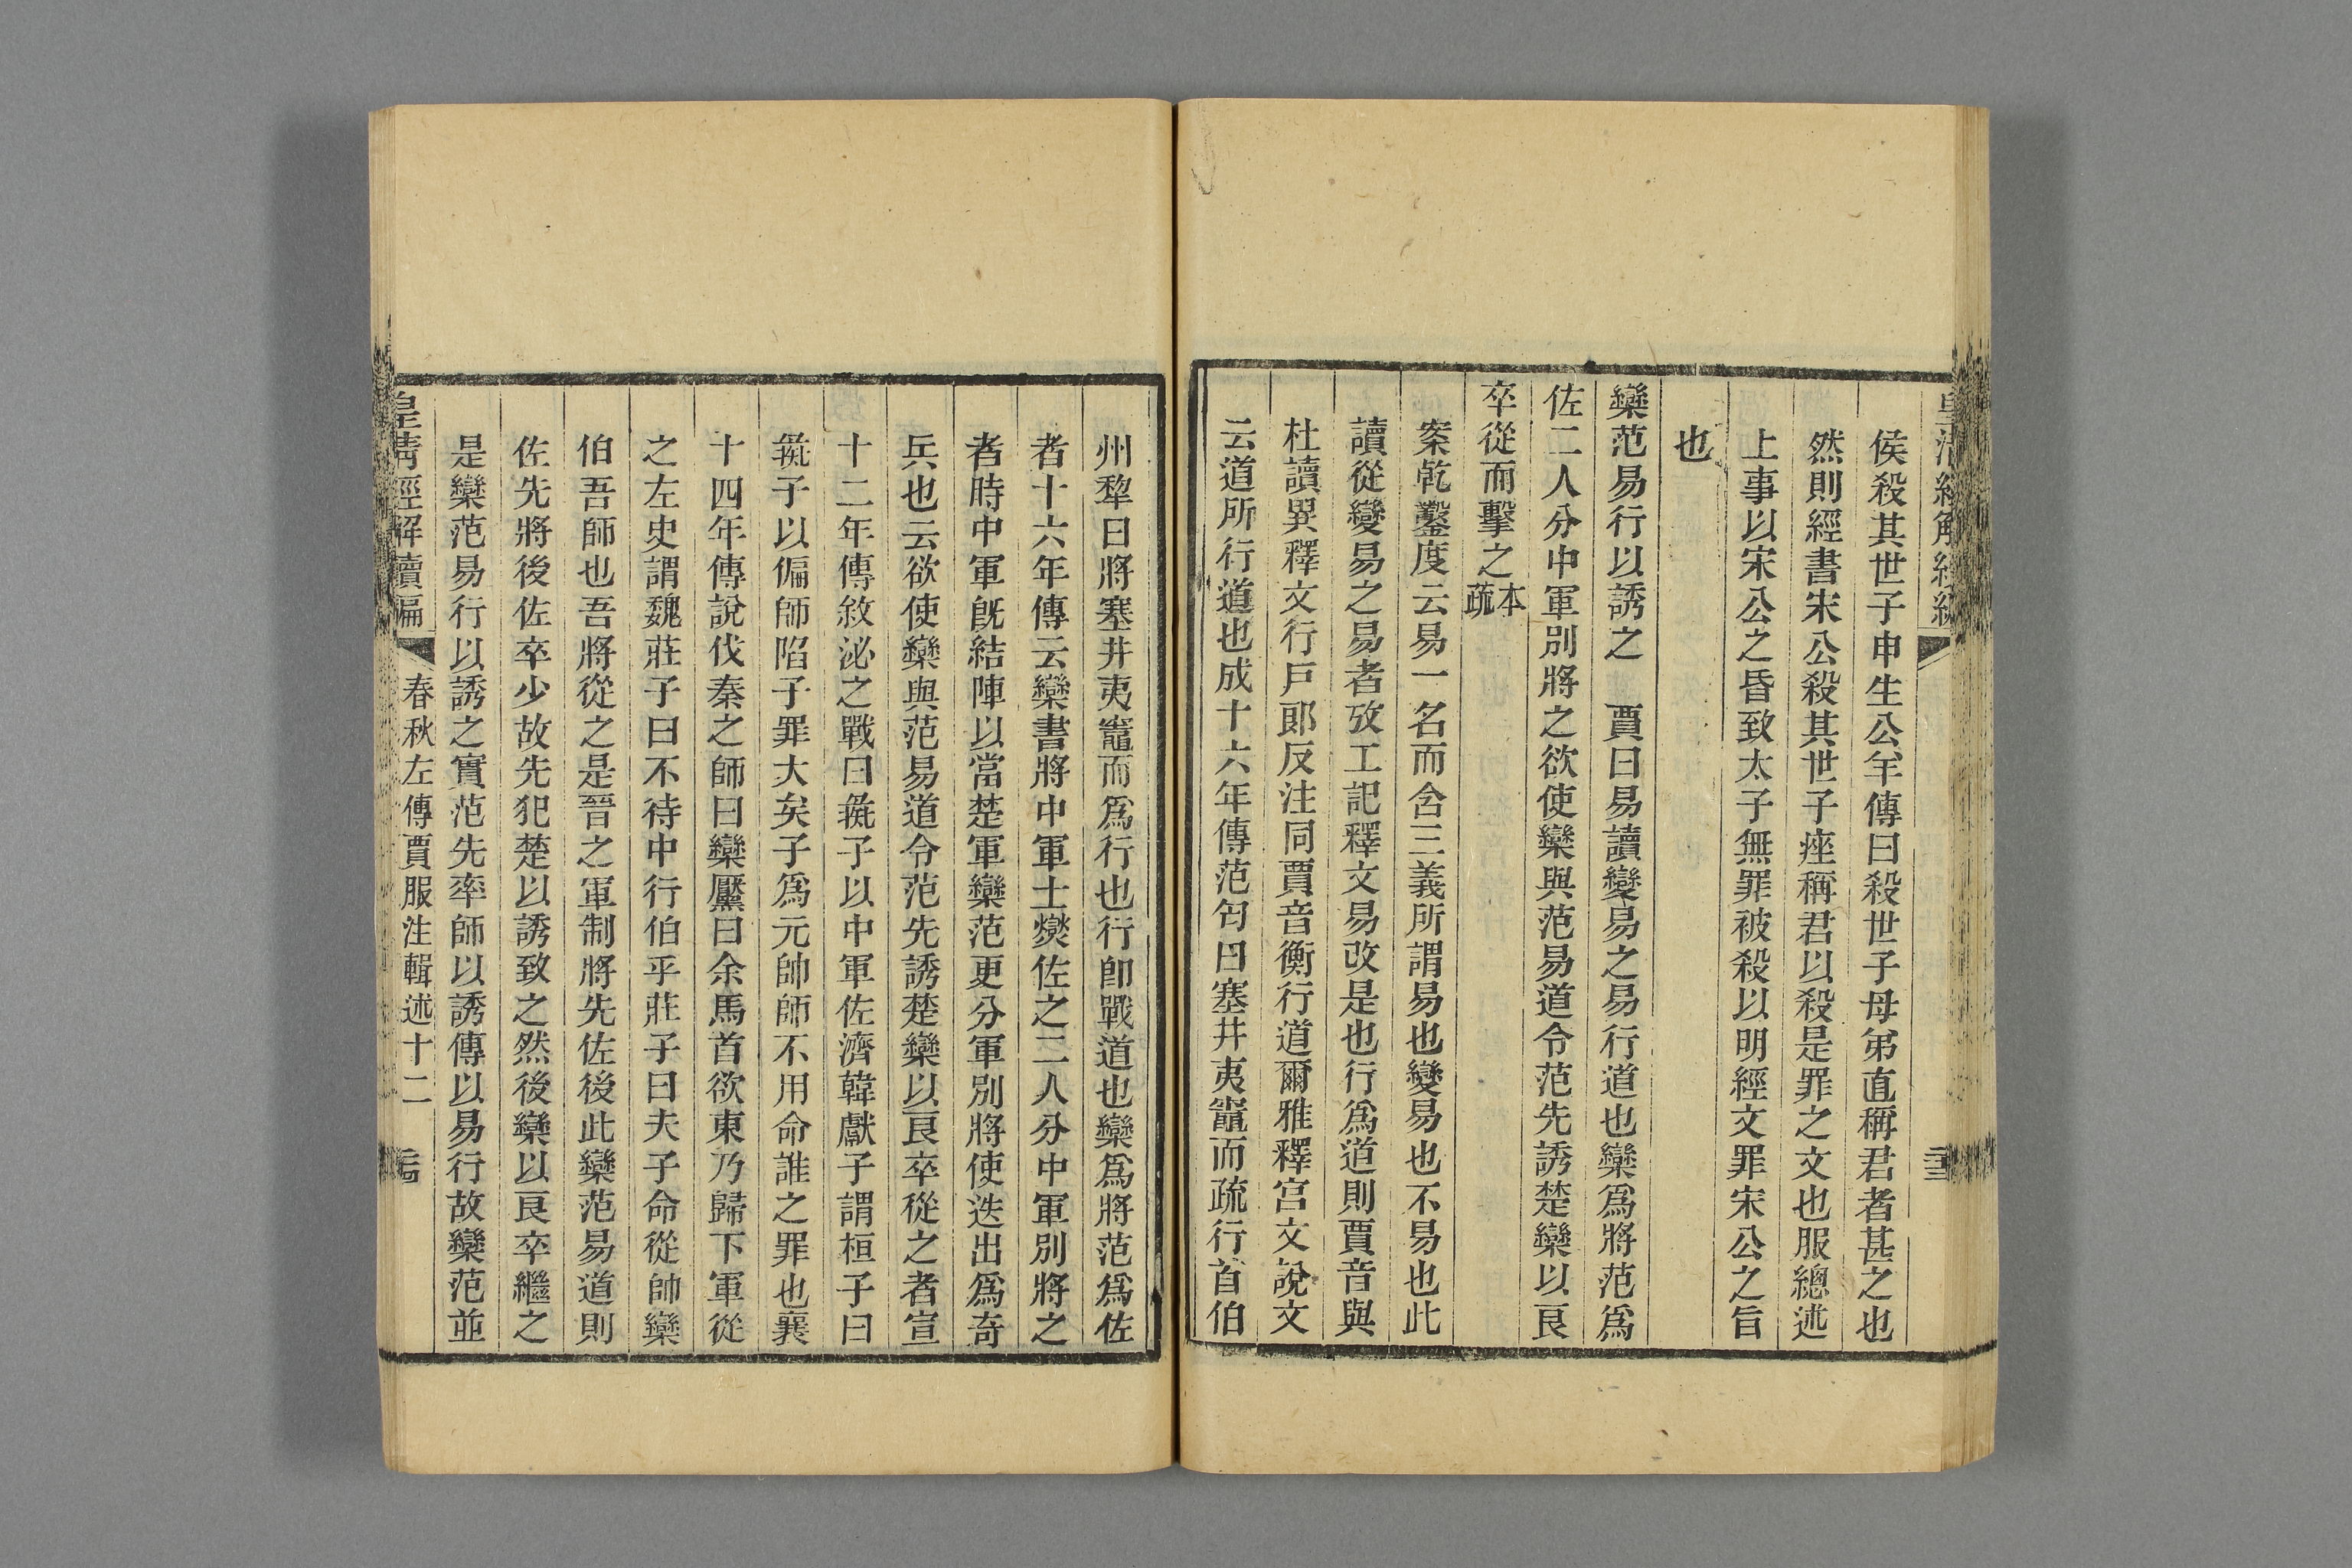 侯殺其世子申生公羊傳曰殺世子母弟直稱君者甚之也
然則經書宋公殺其世子痤稱君以殺是罪之文也服總述
上事以宋公之昏致太子無罪被殺以明經文罪宋公之旨
也
欒范易行以誘之　賈曰易讀變易之易行道也欒爲將范爲
佐二人分中軍別將之欲使欒與范易道令范先誘楚欒以良
卒從而擊之本疏
案乾鑿度云易一名而含三義所謂易也變易也不易也此
讀從變易之易者攷工記釋文易改是也行爲道則賈音與
杜讀異釋文行戸郞反注同賈音衡行道爾雅釋宫文說文
云道所行道也成十六年傳范匄曰塞井夷竈而疏行首伯
州犂曰將塞井夷竈而爲行也行卽戰道也欒爲將范爲佐
者十六年傳云欒書將中軍士燮佐之二人分中軍別將之
者時中軍旣結陣以當楚軍欒范更分軍別將使迭出爲奇
兵也云欲使欒與范易道令范先誘楚欒以良卒從之者宣
十二年傳敘泌之戰曰彘子以中軍佐濟韓獻子謂桓子曰
彘子以偏師陷子罪大矣子爲元帥師不用命誰之罪也襄
十四年傳說伐秦之師曰欒黶曰余馬首欲東乃歸下軍從
之左史謂魏莊子曰不待中行伯乎莊子曰夫子命從帥欒
伯吾師也吾將從之是晉之軍制將先佐後此欒范易道則
佐先將後佐卒少故先犯楚以誘致之然後欒以良卒繼之
是欒范易行以誘之實范先率師以誘傳以易行故欒范並
皇淸經解續編
春秋左傳賈服注輯述十二